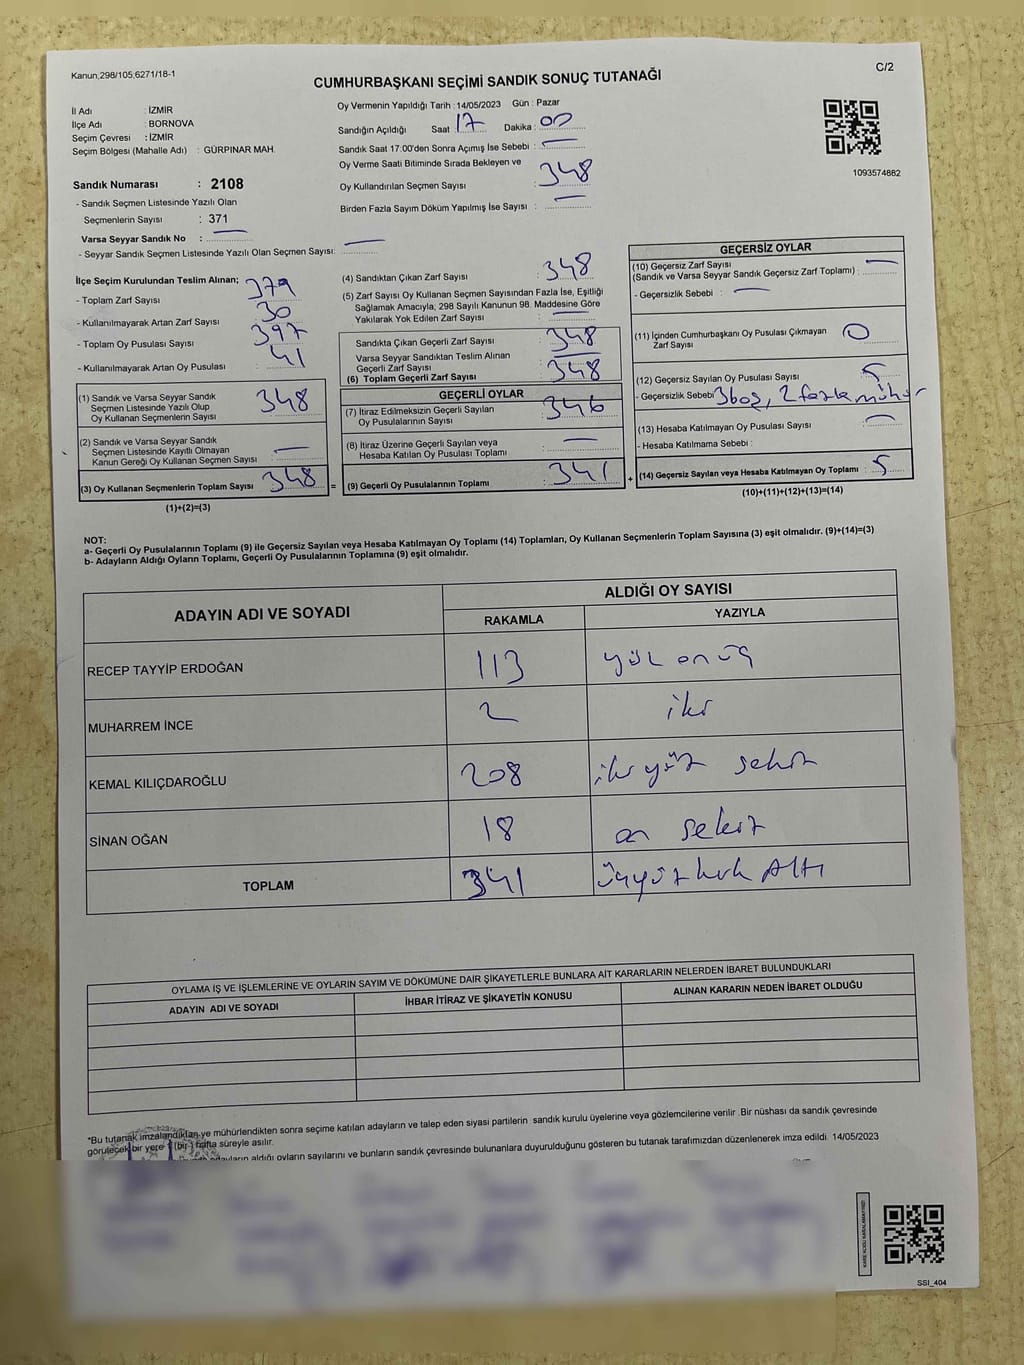 Kanun;298/105;6271/18-1
C/2
CUMHURBAŞKANI SEÇİMİ SANDIK SONUÇ TUTANAĞI
İl Adı : İZMİR
İlçe Adı : BORNOVA
Seçim Çevresi : İZMİR
Seçim Bölgesi (Mahalle Adı) : GÜRPINAR MAH.
Sandık Numarası : 2108
- Sandık Seçmen Listesinde Yazılı Olan
Seçmenlerin Sayısı : 371
Varsa Seyyar Sandık No :
- Seyyar Sandık Seçmen Listesinde Yazılı Olan Seçmen Sayısı:
Oy Vermenin Yapıldığı Tarih : 14/05/2023 Gün : Pazar
Sandığın Açıldığı Saat 17 Dakika : 00
Sandık Saat 17:00'den Sonra Açımış İse Sebebi :
Oy Verme Saati Bitiminde Sırada Bekleyen ve
Oy Kullandırılan Seçmen Sayısı : 348
Birden Fazla Sayım Döküm Yapılmış İse Sayısı :
1093574882
İlçe Seçim Kurulundan Teslim Alınan;
- Toplam Zarf Sayısı : 379
- Kullanılmayarak Artan Zarf Sayısı : 30
- Toplam Oy Pusulası Sayısı : 397
- Kullanılmayarak Artan Oy Pusulası : 41
(1) Sandık ve Varsa Seyyar Sandık
Seçmen Listesinde Yazılı Olup
Oy Kullanan Seçmenlerin Sayısı : 348
(2) Sandık ve Varsa Seyyar Sandık
Seçmen Listesinde Kayıtlı Olmayan
Kanun Gereği Oy Kullanan Seçmen Sayısı :
(3) Oy Kullanan Seçmenlerin Toplam Sayısı : 348 =
(1)+(2)=(3)
(4) Sandıktan Çıkan Zarf Sayısı : 348
(5) Zarf Sayısı Oy Kullanan Seçmen Sayısından Fazla İse, Eşitliği
Sağlamak Amacıyla, 298 Sayılı Kanunun 98. Maddesine Göre
Yakılarak Yok Edilen Zarf Sayısı :
Sandıkta Çıkan Geçerli Zarf Sayısı : 348
Varsa Seyyar Sandıktan Teslim Alınan
Geçerli Zarf Sayısı :
(6) Toplam Geçerli Zarf Sayısı : 348
GEÇERLİ OYLAR
(7) İtiraz Edilmeksizin Geçerli Sayılan
Oy Pusulalarının Sayısı : 346
(8) İtiraz Üzerine Geçerli Sayılan veya
Hesaba Katılan Oy Pusulası Toplamı :
(9) Geçerli Oy Pusulalarının Toplamı : 341 +
GEÇERSİZ OYLAR
(10) Geçersiz Zarf Sayısı
(Sandık ve Varsa Seyyar Sandık Geçersiz Zarf Toplamı) :
- Geçersizlik Sebebi :
(11) İçinden Cumhurbaşkanı Oy Pusulası Çıkmayan
Zarf Sayısı : 0
(12) Geçersiz Sayılan Oy Pusulası Sayısı : 5
- Geçersizlik Sebebi : 3 boş, 2 fazla mühür
(13) Hesaba Katılmayan Oy Pusulası Sayısı :
- Hesaba Katılmama Sebebi :
(14) Geçersiz Sayılan veya Hesaba Katılmayan Oy Toplamı : 5
(10)+(11)+(12)+(13)=(14)
NOT:
a- Geçerli Oy Pusulalarının Toplamı (9) ile Geçersiz Sayılan veya Hesaba Katılmayan Oy Toplamı (14) Toplamları, Oy Kullanan Seçmenlerin Toplam Sayısına (3) eşit olmalıdır. (9)+(14)=(3)
b- Adayların Aldığı Oyların Toplamı, Geçerli Oy Pusulalarının Toplamına (9) eşit olmalıdır.
ADAYIN ADI VE SOYADI ALDIĞI OY SAYISI
RAKAMLA YAZIYLA
RECEP TAYYİP ERDOĞAN 113 yüz onüç
MUHARREM İNCE 2 iki
KEMAL KILIÇDAROĞLU 208 iki yüz sekiz
SİNAN OĞAN 18 on sekiz
TOPLAM 341 üçyüz kırk Altı
OYLAMA İŞ VE İŞLEMLERİNE VE OYLARIN SAYIM VE DÖKÜMÜNE DAİR ŞİKAYETLERLE BUNLARA AİT KARARLARIN NELERDEN İBARET BULUNDUKLARI
ADAYIN ADI VE SOYADI İHBAR İTİRAZ VE ŞİKAYETİN KONUSU ALINAN KARARIN NEDEN İBARET OLDUĞU
*Bu tutanak imzalandıktan ve mühürlendikten sonra seçime katılan adayların ve talep eden siyasi partilerin sandık kurulu üyelerine veya gözlemcilerine verilir .Bir nüshası da sandık çevresinde
görülecek bir yere 1 (bir ) hafta süreyle asılır.
adayların aldığı oyların sayılarını ve bunların sandık çevresinde bulunanlara duyurulduğunu gösteren bu tutanak tarafımızdan düzenlenerek imza edildi. 14/05/2023
SSI_404